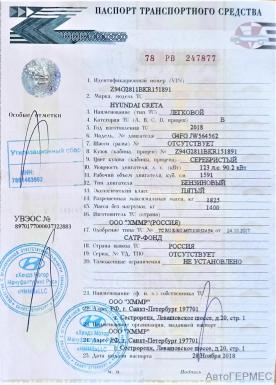 ПАСПОРТ ТРАНСПОРТНОГО СРЕДСТВА
78 РВ 247877
1. Идентификационный номер (VIN)
Z94G2811BKR151891
2. Марка, модель ТС
HYUNDAI CRETA
Особые отметки
3. Наименование (тип ТС) ЛЕГКОВОЙ
4. Категория ТС (А, В, С, D, прицеп) B
5. Год изготовления ТС 2018
6. Модель, № двигателя G4FG JW564562
7. Шасси (рама) № ОТСУТСТВУЕТ
8. Кузов (кабина, прицеп) № Z94G2811BKR151891
9. Цвет кузова (кабины, прицепа) СЕРЕБРИСТЫЙ
10. Мощность двигателя, л. с. (кВт) 123 л.с. 90.2 кВт
11. Рабочий объем двигателя, куб. см 1591
12. Тип двигателя БЕНЗИНОВЫЙ
13. Экологический класс ПЯТЫЙ
14. Разрешенная максимальная масса, кг 1825
15. Масса без нагрузки, кг 1400
16. Изготовитель ТС (страна)
ООО "ХММР"(РОССИЯ)
17. Одобрение типа ТС №
САТР-ФОНД
18. Страна вывоза ТС РОССИЯ
19. Серия, № ТД, ТПО ОТСУТСТВУЕТ
20. Таможенные ограничения НЕ УСТАНОВЛЕНО
Утилизационный сбор
УВЭОС №
ООО "ХММР"
22. Адрес РФ, г. Санкт-Петербург 197701
г. Сестрорецк, Левашовское шоссе, д.20, стр. 1
ООО "ХММР"
24. Адрес РФ, г. Санкт-Петербург 197701
г. Сестрорецк, Левашовское шоссе, д.20, стр. 1
25. Дата выдачи паспорта 28 Ноября 2018
М. П.
Подпись
АвтоГЕРМЕС